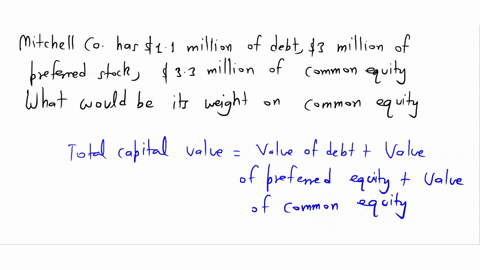 Mitchell Co. has $1.1 million of debt, $3 million of
preferred stock, $3.3 million of common equity
What would be its weight on common equity
Total capital value = Value of debt + Value
of preferred equity + Value
of common equity